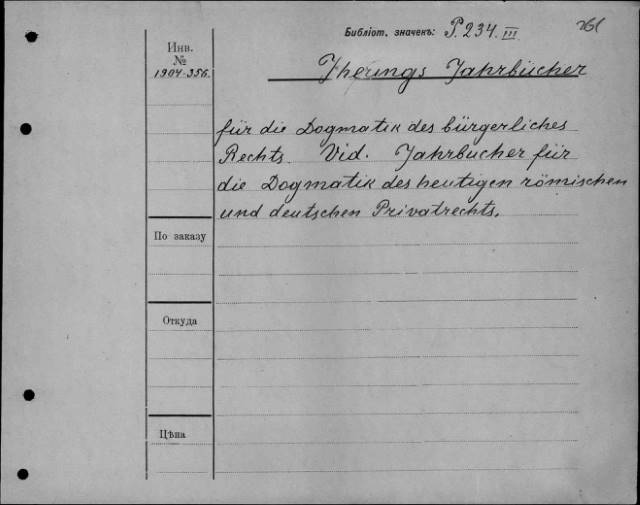 Библіот. значекъ: P. 234. III
261
Инв.
№
1904-356.
Jherings Jahrbücher
für die Dogmatik des bürgerliches
Rechts. Vid. Jahrbucher für
die Dogmatik des heutigen römischen
und deutschen Privatrechts.
По заказу
Откуда
Цѣна